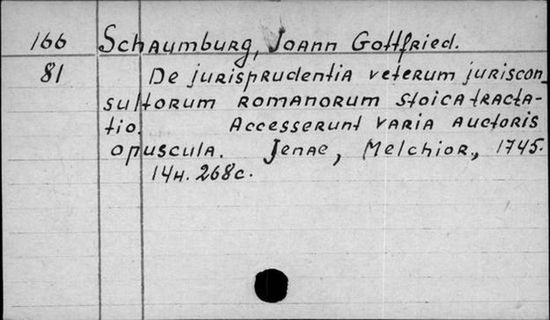 166 Schaumburg, Joann Gottfried.
81 De jurisprudentia veterum juriscon-
sultorum romanorum stoica tracta-
tio. Accesserunt varia auctoris
opuscula. Jenae, Melchior., 1745.
14н. 268с.